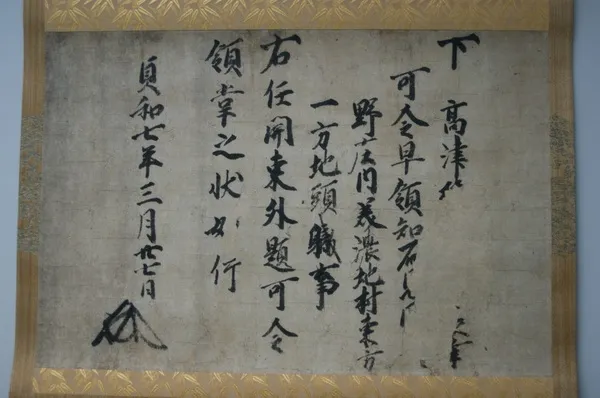 下 高津
可令早領知石
野庄内美濃地村東方
一方地頭職事
右任関東外題可令
領掌之状如行
貞和七年三月廿七日